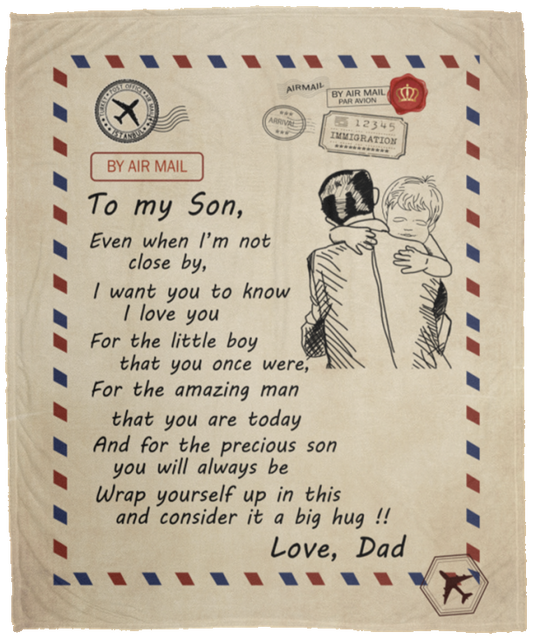 TURKEY • POST OFFICE • AIR MAIL
ISTANBUL
AIRMAIL
BY AIR MAIL
PAR AVION
ARRIVAL
12345
IMMIGRATION
BY AIR MAIL
To my Son,
Even when I'm not
close by,
I want you to know
I love you
For the little boy
that you once were,
For the amazing man
that you are today
And for the precious son
you will always be
Wrap yourself up in this
and consider it a big hug !!
Love, Dad